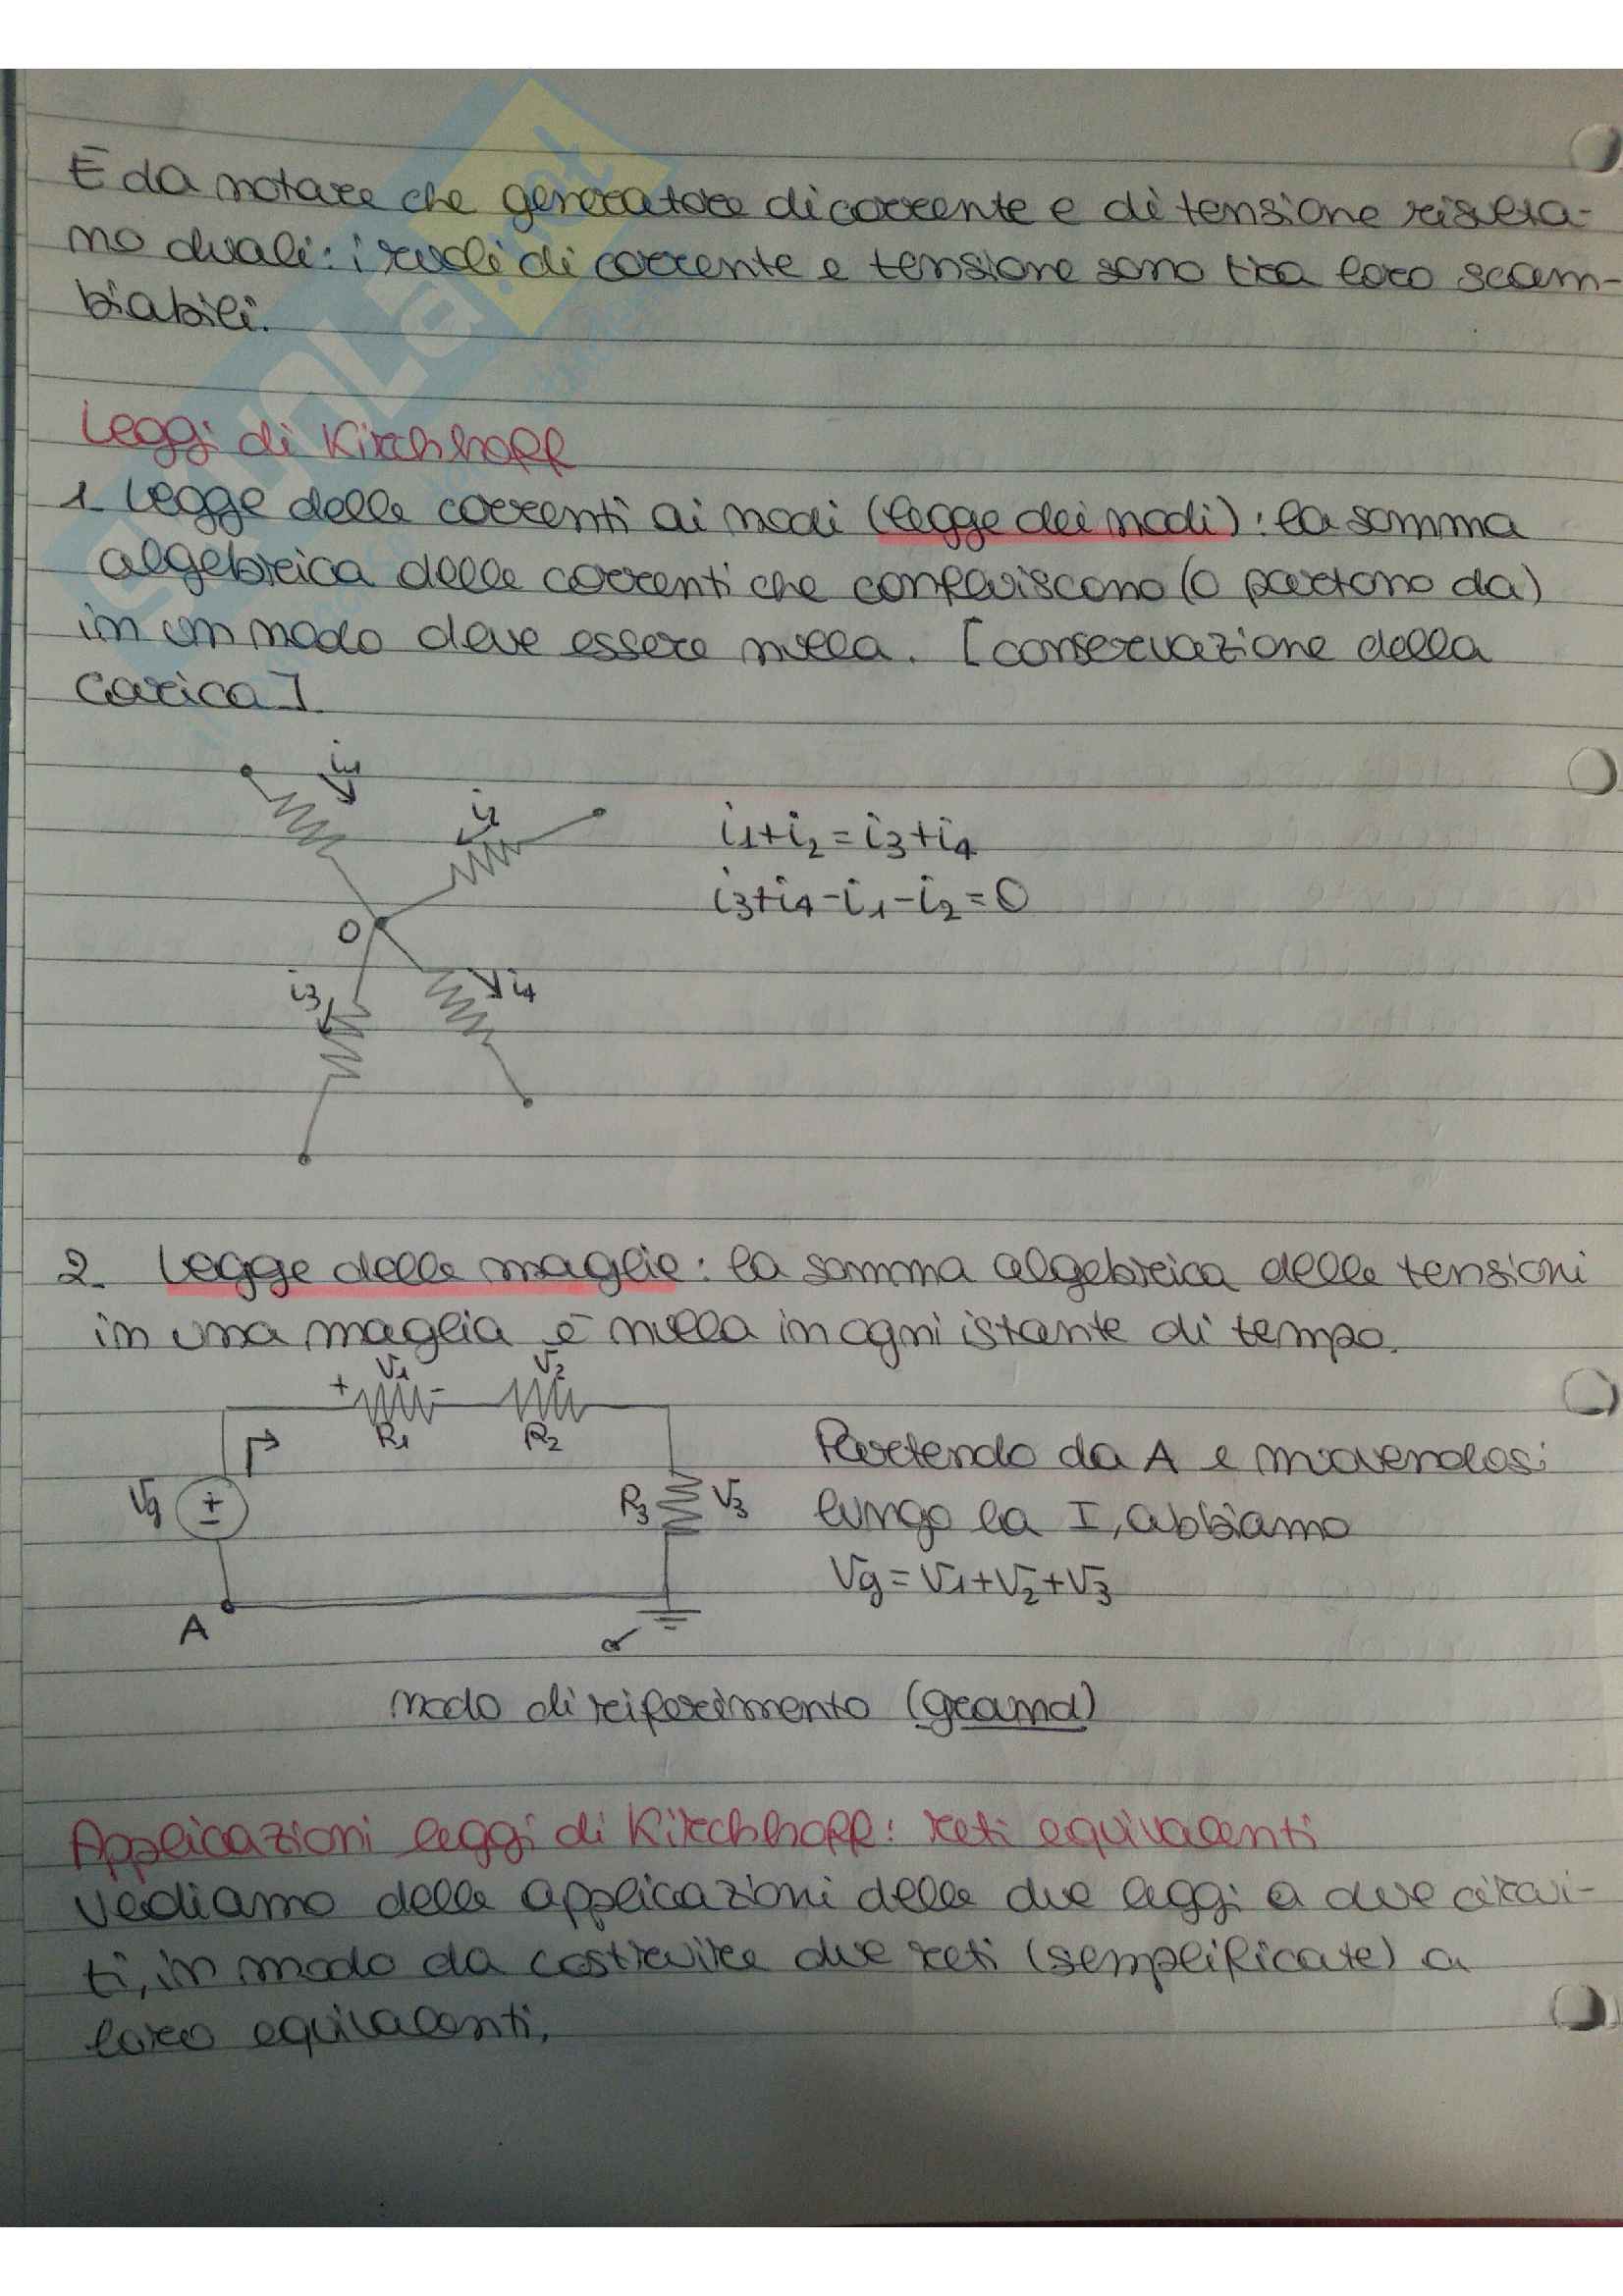 È da notare che generatore di corrente e di tensione risulta-
no duali: i ruoli di corrente e tensione sono tra loro scam-
biabili.
Leggi di Kirchhoff
1. Legge delle correnti ai nodi (legge dei nodi): la somma
algebrica delle correnti che confluiscono (o partono da)
in un nodo deve essere nulla. [conservazione della
carica].
i1
i2
i1+i2=i3+i4
i3+i4-i1-i2=0
O
i3
i4
2. Legge delle maglie: la somma algebrica delle tensioni
in una maglia è nulla in ogni istante di tempo.
V1 V2
+ -
R1 R2
Partendo da A e muovendosi
Vg + - R3 V3
lungo la I, abbiamo
Vg=V1+V2+V3
A
nodo di riferimento (ground)
Applicazioni leggi di Kirchhoff: reti equivalenti
Vediamo delle applicazioni delle due leggi a due circui-
ti, in modo da costruire due reti (semplificate) a
loro equivalenti.